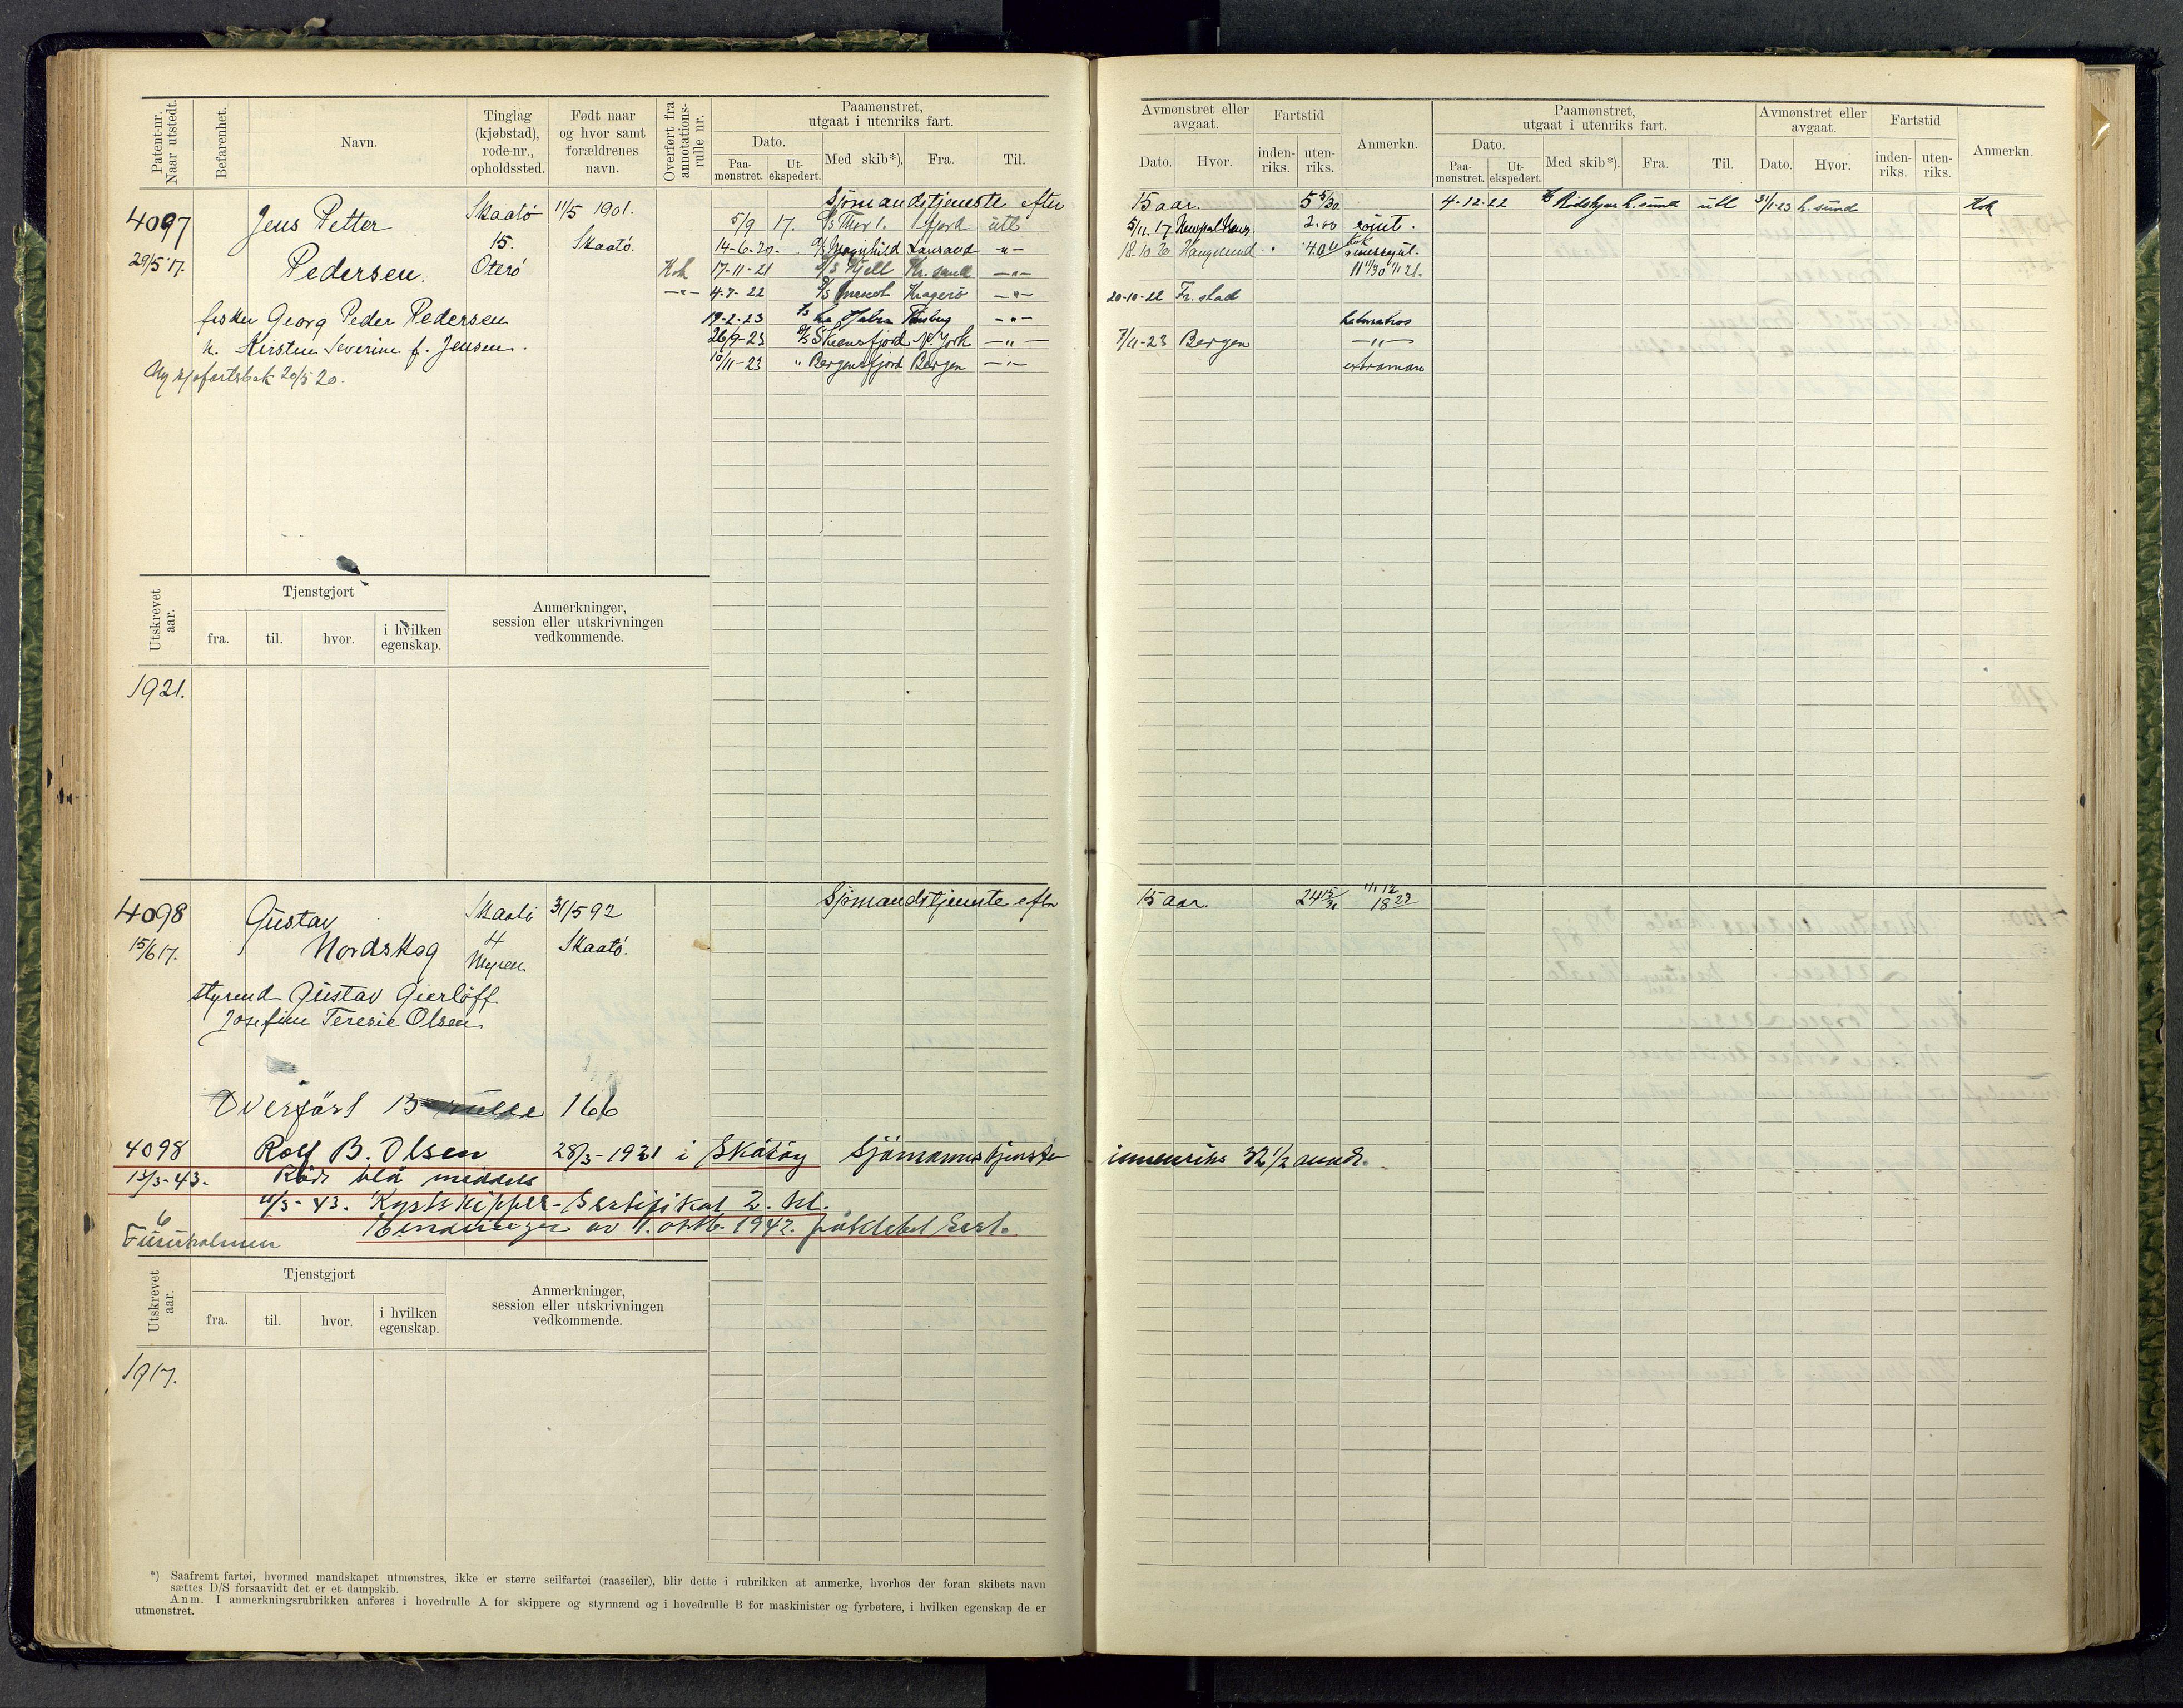 Patent-nr. Naar utstedt.
Befarenhet.
Navn.
Tinglag (kjøbstad), rode-nr., opholdssted.
Født naar og hvor samt forældrenes navn.
Overført fra annotations-rulle nr.
Paamønstret, utgaat i utenriks fart.
Dato.
Paa-mønstret.
Ut-ekspedert.
Med skib*).
Fra.
Til.
Avmønstret eller avgaat.
Dato.
Hvor.
Fartstid
inden-riks.
uten-riks.
Anmerkn.
Paamønstret, utgaat i utenriks fart.
Dato.
Paa-mønstret.
Ut-ekspedert.
Med skib*).
Fra.
Til.
Avmønstret eller avgaat.
Dato.
Hvor.
Fartstid
inden-riks.
uten-riks.
Anmerkn.
4097
29/5 17.
Jens Petter
Pedersen.
Skaatö
15.
Oterö
11/5 1901.
Skaatö.
fisker Georg Peder Pedersen
h. Kirsten Severine f. Jensen.
Ny sjøfartsbok 20/5 20.
Sjömandstjeneste efter 15 aar. 5 5/30
5/9 17. D/S Thor 1. Sfjord utl 5/11. 17 2.00 römt.
14-6-20. D/S Magnhild Langsund -"- 18.10 20 Haugesund
Kok 17-11-21 D/S Kjell Kr. sand -"-
-"- 4-7-22 D/S Kragerö -"- 20-10-22 Fr. stad
19-2-23 Tönsberg -"- halvmatros
26/9-23 D/S Skiensfjord N. York -"- 7/11-23 Bergen -"-
10/11-23 " Bergensfjord Bergen -"- extraman
4-12-22 h. sund utl 31/1-23 h. sund Kok
Utskrevet aar.
Tjenstgjort
fra.
til.
hvor.
i hvilken egenskap.
Anmerkninger, session eller utskrivningen vedkommende.
1921.
4098
15/6 17.
Gustav
Nordskog
Skaatö
4
Myren
31/5 92
Skaatö.
Sjömandstjeneste efter 15 aar.
styrmd Gustav Gierløff
Josefine Teresie Olsen
Overført B rulle 166
4098 Rolf B. Olsen 28/3-1921 i Skåtöy Sjömannstjeneste innenriks 32 1/2 mndr.
13/3-43. Röd blå meddelt
11/3-43. Kystskipper-Sertifikat 2. kl.
6
Furuholmen
Endringer av 1. oktb. 1942. påklebet Sert.
Utskrevet aar.
Tjenstgjort
fra.
til.
hvor.
i hvilken egenskap.
Anmerkninger, session eller utskrivningen vedkommende.
1917.
*) Saafremt fartøi, hvormed mandskapet utmønstres, ikke er større seilfartøi (raaseiler), blir dette i rubrikken at anmerke, hvorhos der foran skibets navn
sættes D/S forsaavidt det er et dampskib.
Anm. I anmerkningsrubrikken anføres i hovedrulle A for skippere og styrmænd og i hovedrulle B for maskinister og fyrbøtere, i hvilken egenskap de er
utmønstret.